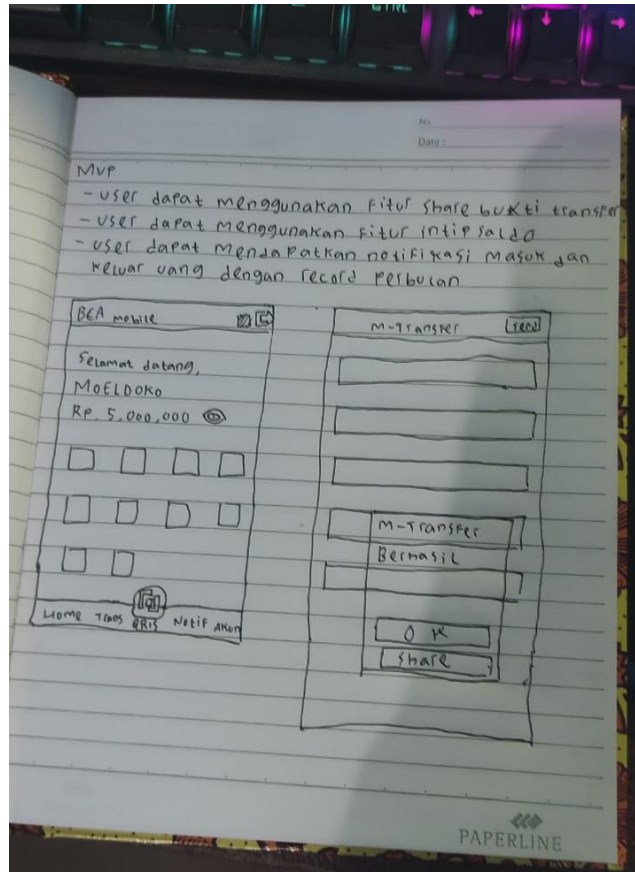 No.
Date :
MVP
- user dapat menggunakan fitur share bukti transfer
- user dapat menggunakan fitur intip saldo
- user dapat mendapatkan notifikasi masuk dan
keluar uang dengan record perbulan
BCA mobile
Selamat datang,
MOELDOKO
Rp. 5.000,000
Home Trans QRIS Notif Akun
M-Transfer
send
M-Transfer
Berhasil
OK
Share
PAPERLINE